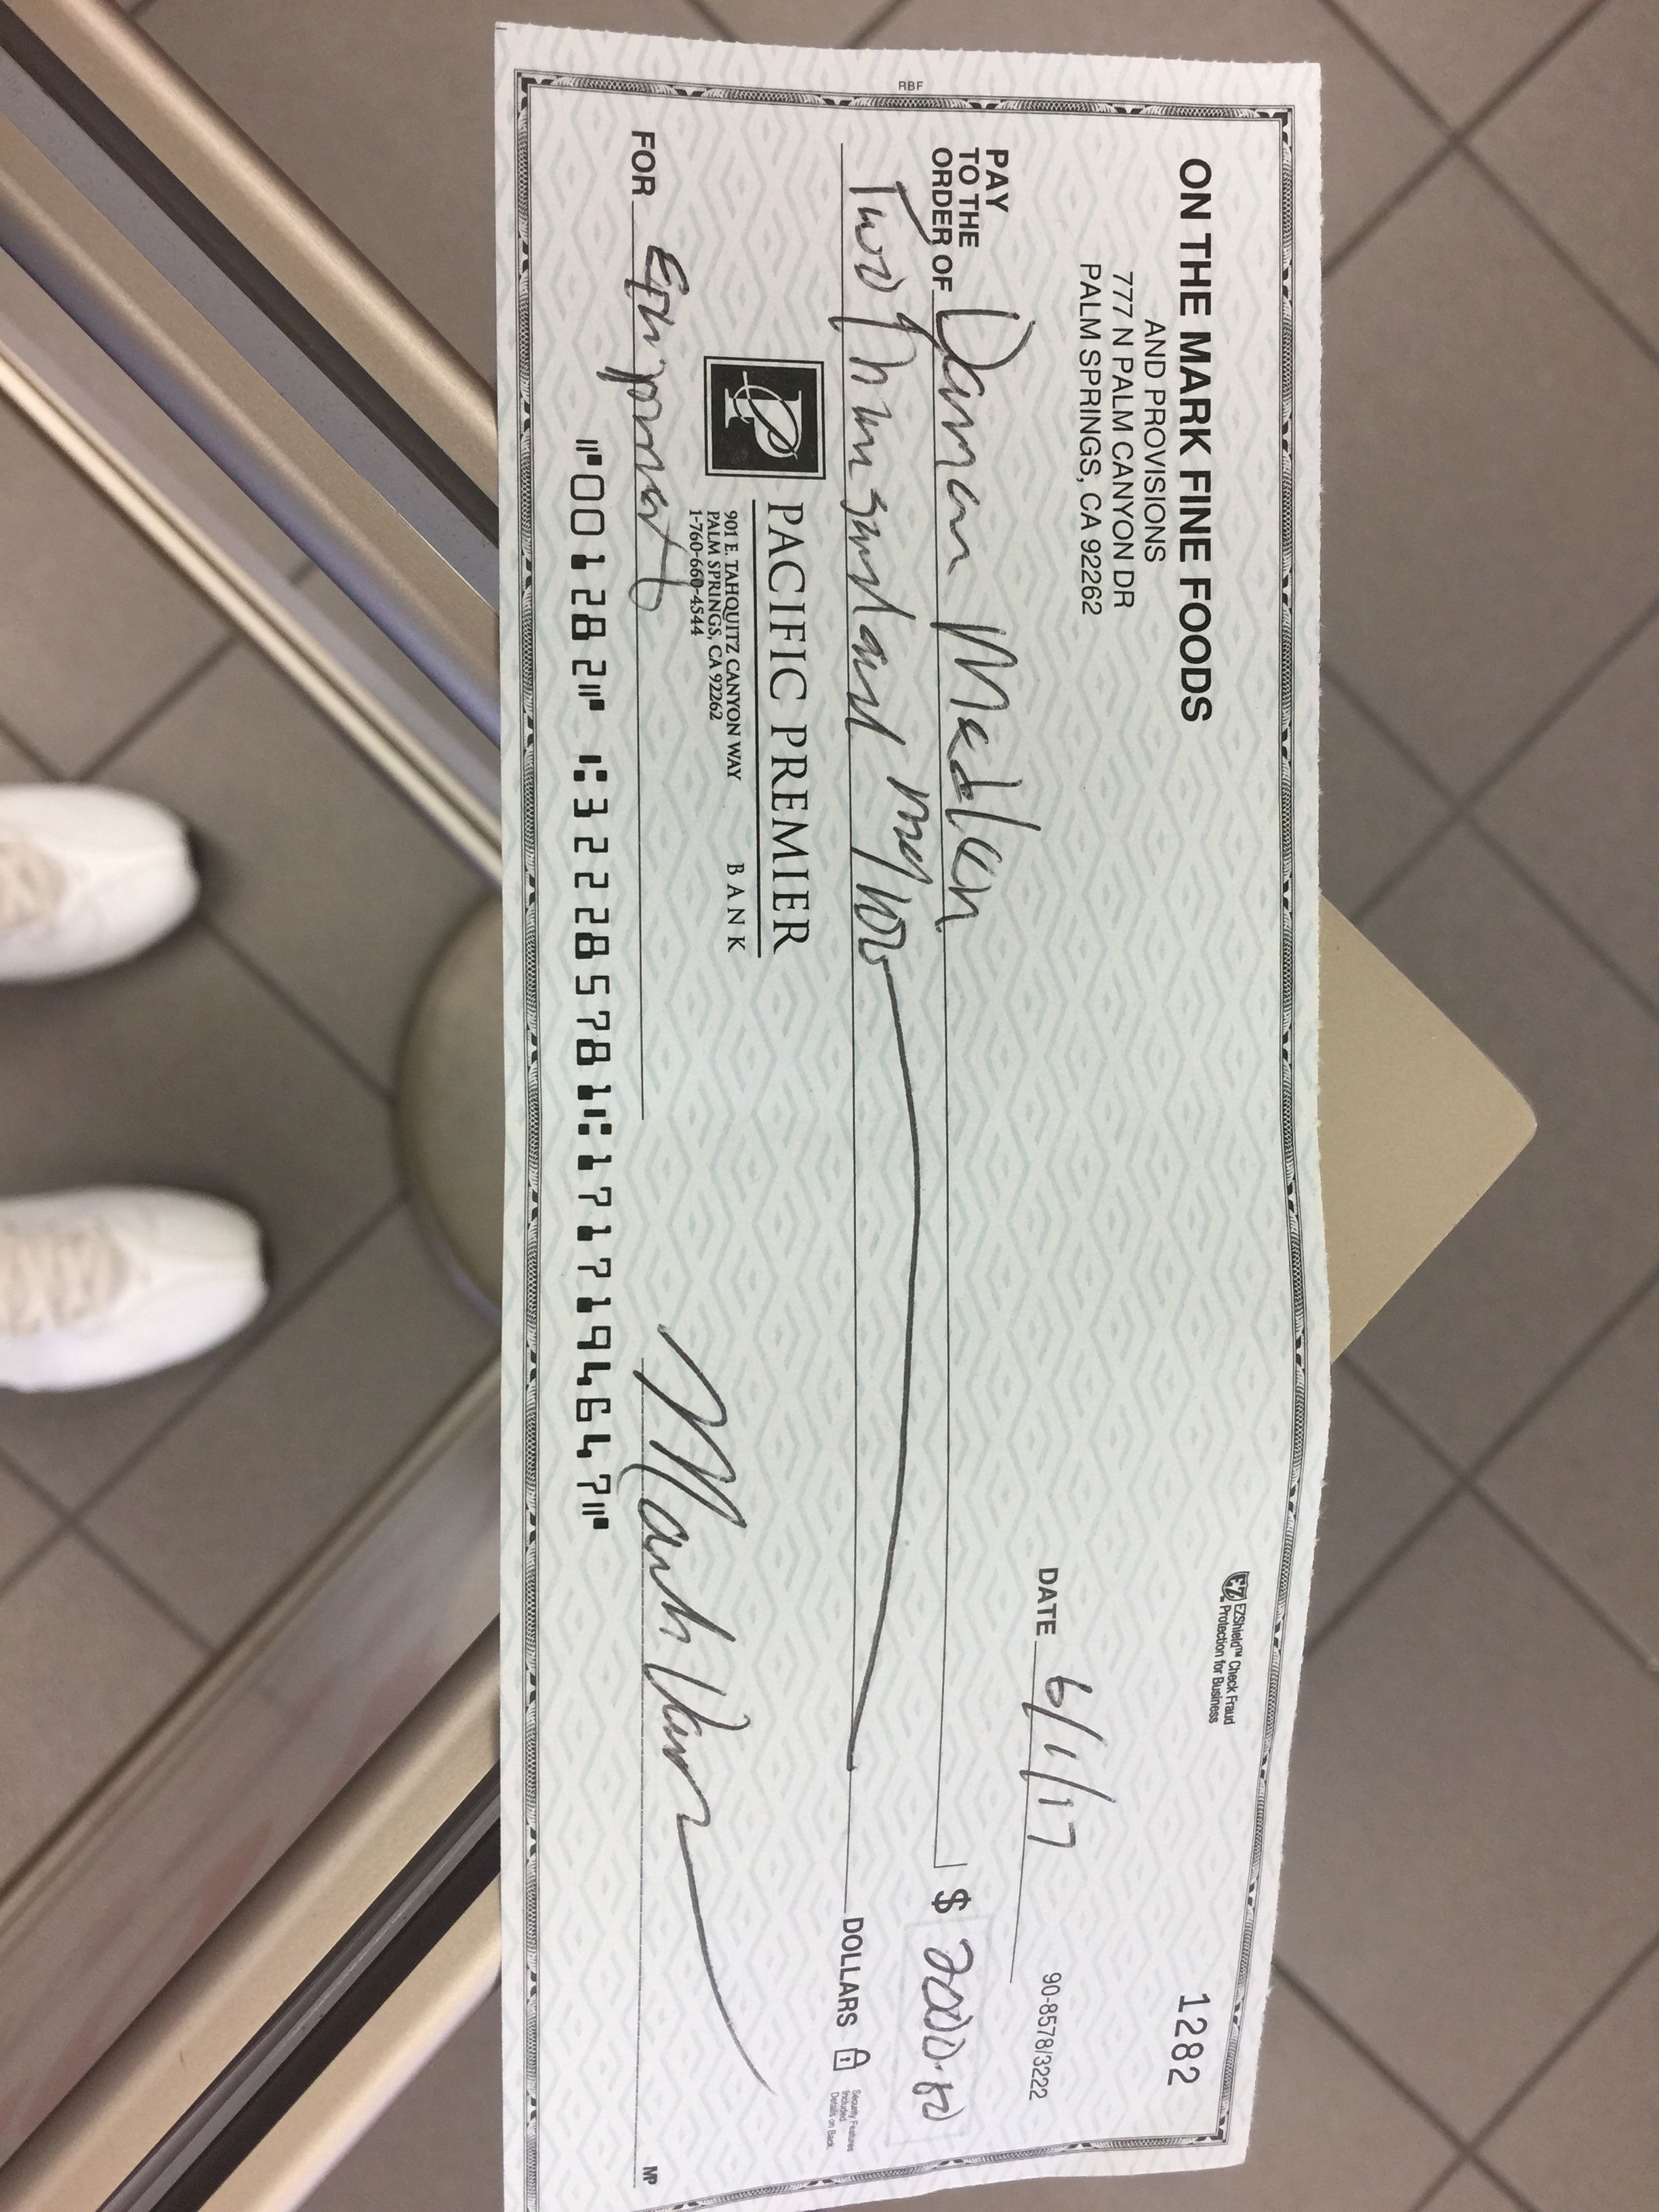 ON THE MARK FINE FOODS
AND PROVISIONS
777 N PALM CANYON DR
PALM SPRINGS, CA 92262
EZ EZShield™ Check Fraud
Protection for Business
1282
90-8578/3222
DATE 6/1/17
RBF
PAY
TO THE
ORDER OF Daman Madden $ 2000.00
Two Thousand and no/100 DOLLARS
Security Features
Included
Details on Back
PACIFIC PREMIER
BANK
901 E. TAHQUITZ CANYON WAY
PALM SPRINGS, CA 92262
1-760-660-4544
FOR Equipment
MP
⑈001282⑈ ⑆322285781⑆1717194647⑈